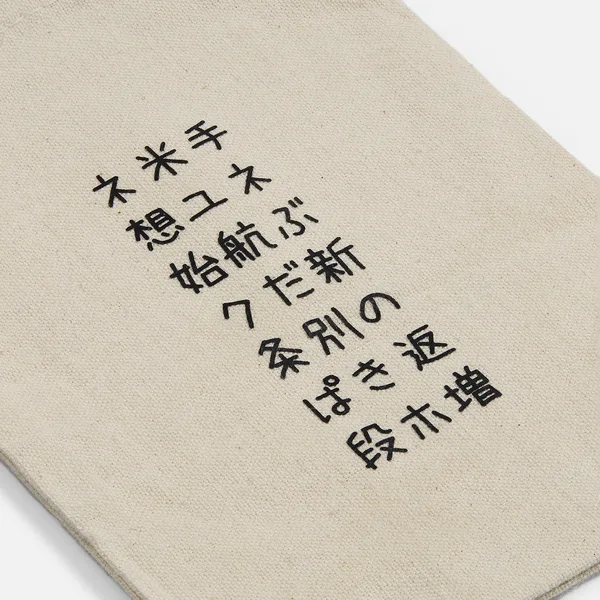 ネ米手
想ユネ
始航ぶ
クだ新
条別の
ぱき返
段ホ増